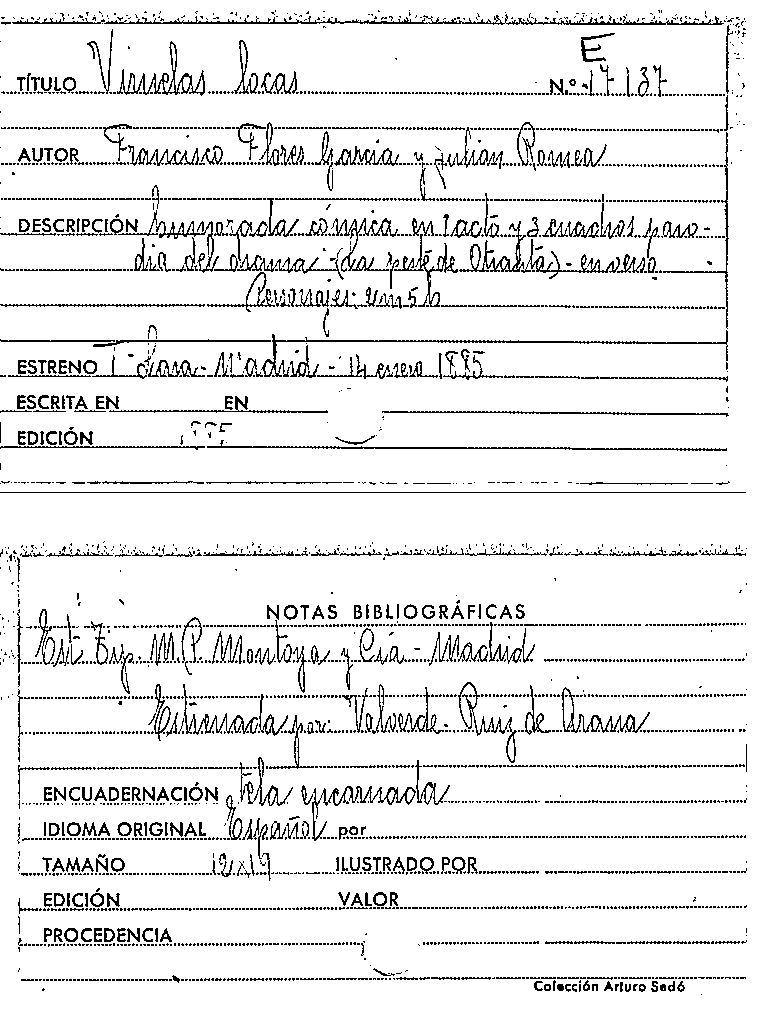 E
TÍTULO Viruelas locas N.º 17137
AUTOR Francisco Flores García y Julián Romea
DESCRIPCIÓN humorada cómica en 1 acto y 3 cuadros paro-
dia del drama - (La peste de Otranto) - en verso
Personajes: 2m 5h
ESTRENO Tº Lara - Madrid - 14 enero 1885
ESCRITA EN EN
EDICIÓN 1885
NOTAS BIBLIOGRÁFICAS
Est. Tip. M.P. Montoya y Cía - Madrid
Estrenada por: Valverde - Ruiz de Arana
ENCUADERNACIÓN tela encarnada
IDIOMA ORIGINAL Español por
TAMAÑO 12x19 ILUSTRADO POR
EDICIÓN VALOR
PROCEDENCIA
Colección Arturo Sedó